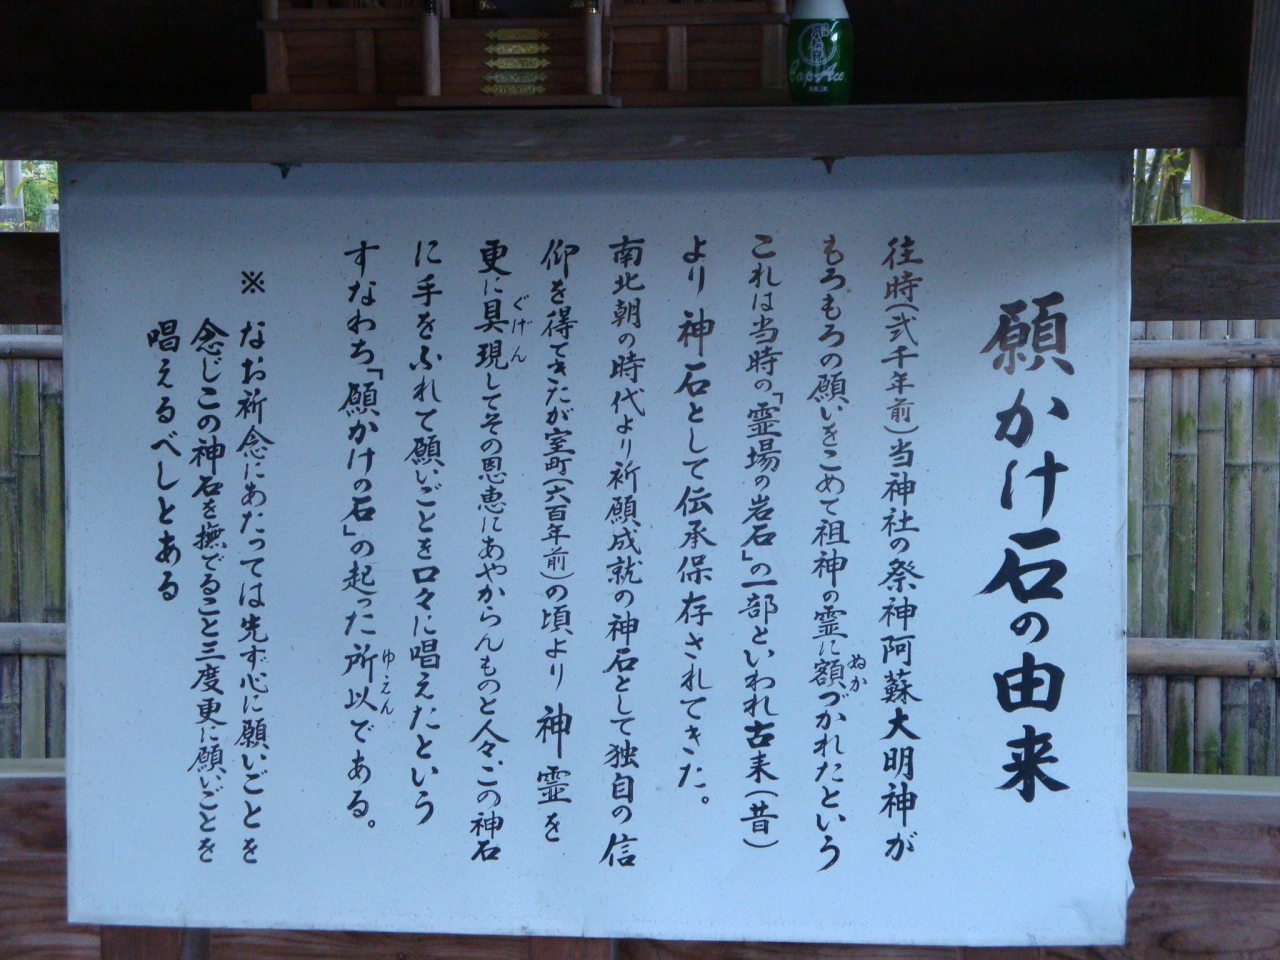 願かけ石の由来
往時(弐千年前)当神社の祭神阿蘇大明神が
もろもろの願いをこめて祖神の霊に額づかれたという
ぬか
これは当時の「霊場の岩石」の一部といわれ古来(昔)
より神石として伝承保存されてきた。
南北朝の時代より祈願成就の神石として独自の信
仰を得てきたが室町(六百年前)の頃より神霊を
更に具現してその恩恵にあやからんものと人々この神石
ぐげん
に手をふれて願いごとを口々に唱えたという
すなわち「願かけの石」の起った所以である。
ゆえん
※ なお祈念にあたっては先ず心に願いごとを
念じこの神石を撫でること三度更に願いごとを
唱えるべしとある
Cap Ace